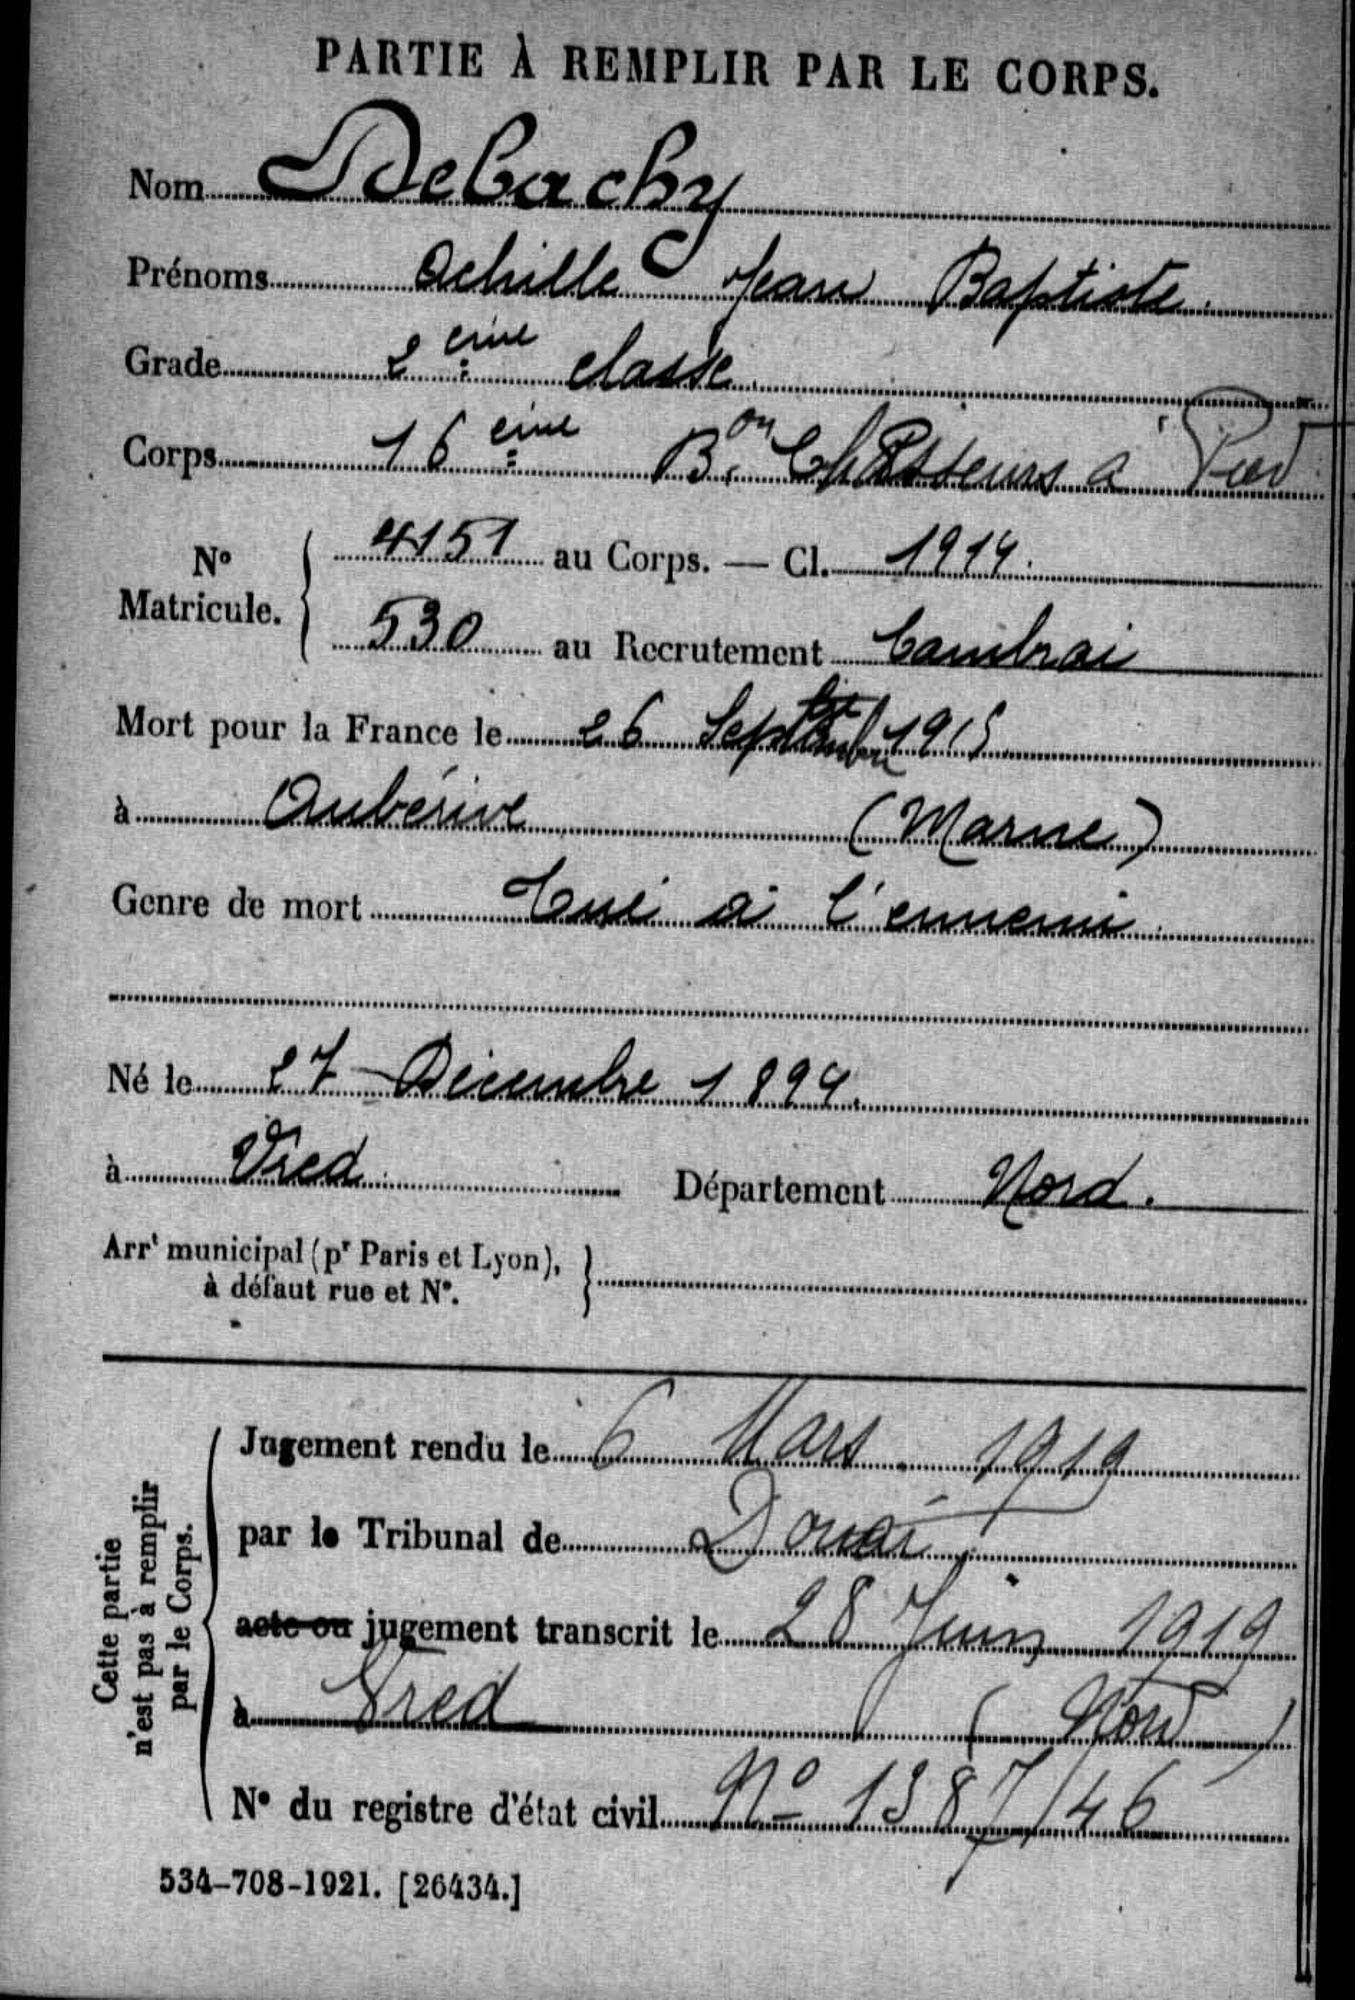 PARTIE À REMPLIR PAR LE CORPS.
Nom Debachy
Prénoms Achille Jean Baptiste.
Grade 2ème classe.
Corps 16ème Bon Chasseurs à Pied
No Matricule. 4151 au Corps. — Cl. 1914.
530 au Recrutement Cambrai
Mort pour la France le 26 Septembre 1915
à Aubérive (Marne)
Genre de mort Tué à l'ennemi.
Né le 27 Décembre 1894.
à Vred Département Nord.
Arrt municipal (pr Paris et Lyon),
à défaut rue et No.
Cette partie
n'est pas à remplir
par le Corps.
Jugement rendu le 6 Mars 1919
par le Tribunal de Douai
acte ou jugement transcrit le 28 Juin 1919
à Vred (Nord)
No du registre d'état civil No 1387/46
534-708-1921. [26434.]